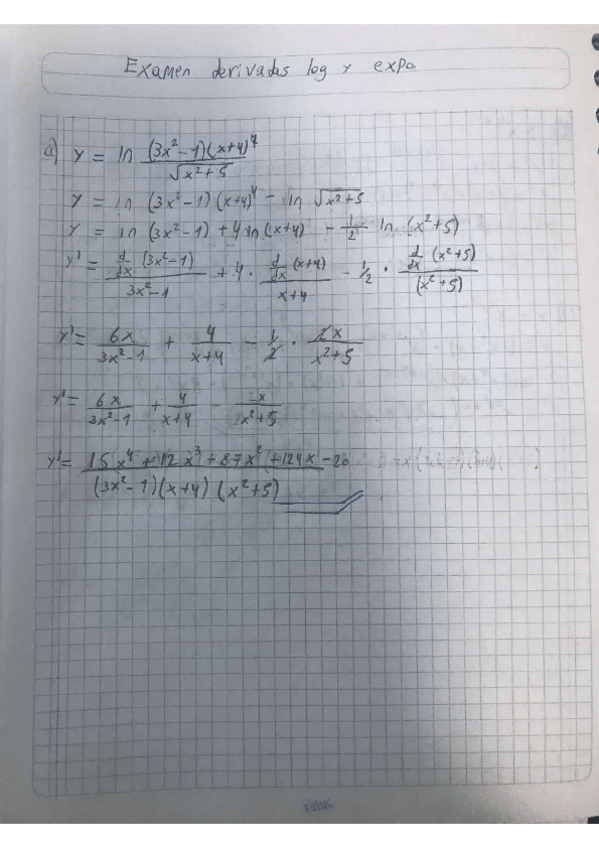 Examen derivadas log y expo.
a) y = ln (3x²-1)(x+4)⁴ / √x²+5
y = ln (3x²-1)(x+4)⁴ - ln √x²+5
y = ln (3x²-1) + 4 ln (x+4) - 1/2 ln (x²+5)
y' = d/dx (3x²-1) / 3x²-1 + 4 · d/dx (x+4) / x+4 - 1/2 · d/dx (x²+5) / (x²+5)
y' = 6x / 3x²-1 + 4 / x+4 - 1/2 · 2x / x²+5
y' = 6x / 3x²-1 + 4 / x+4 - x / x²+5
y' = 15x⁴ + 12x³ + 87x² + 124x - 20 / (3x²-1)(x+4)(x²+5)